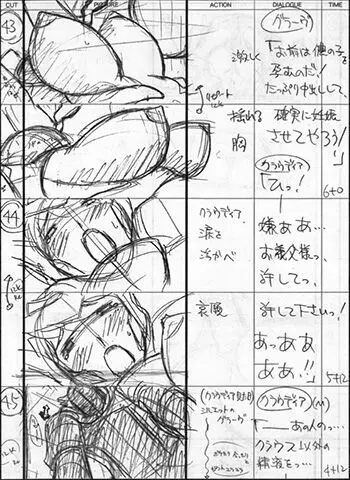 CUT PICTURE ACTION DIALOGUE TIME
43
グラーヴ
激しく
「お前は儂の子を
孕むのだ!
たっぷり中出しして、
リピート
揺れる
胸
確実に妊娠
させてやろう!」
クラウディア
「ひっ!
6+0
44
クラウディア
涙を
浮かべ
嫌ああ…
お義父様っ、
許してっ、
哀願
許して下さい!
あっああ
ああ!!」
5+12
45
(クラウディア見た目)
シルエットの
グラーヴ
クラウディア (M)
「――あの人のっ…
クラウス以外の
精液をっ…
4+12